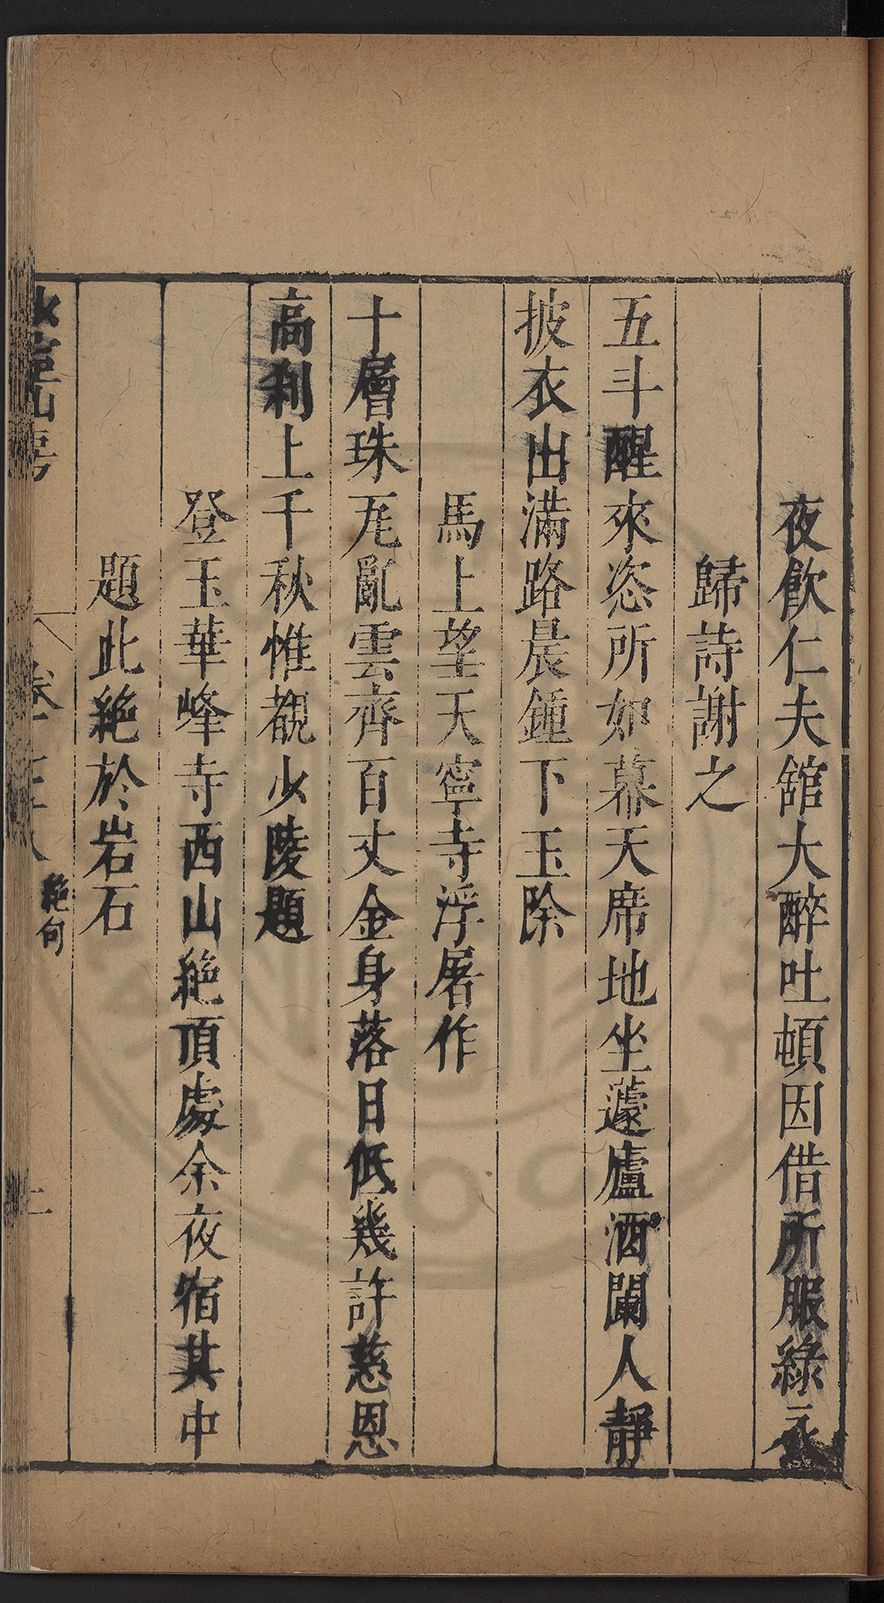 夜飲仁夫舘大醉吐頓因借所服綠衣
歸詩謝之
五斗醒來恣所如幕天席地坐蘧廬酒闌人靜
披衣出滿路晨鍾下玉除
馬上望天寧寺浮屠作
十層珠瓦亂雲齊百丈金身落日低幾許慈恩
高刹上千秋惟覩少陵題
登玉華峰寺西山絶頂處余夜宿其中
題此絶於岩石
山房
卷
絶句